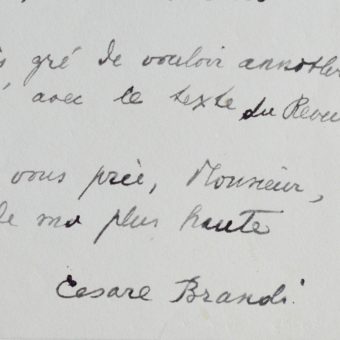 gré de vouloir annoter
avec le texte du Revu
vous prèe, Monsieur,
de ma plus haute
Cesare Brandi